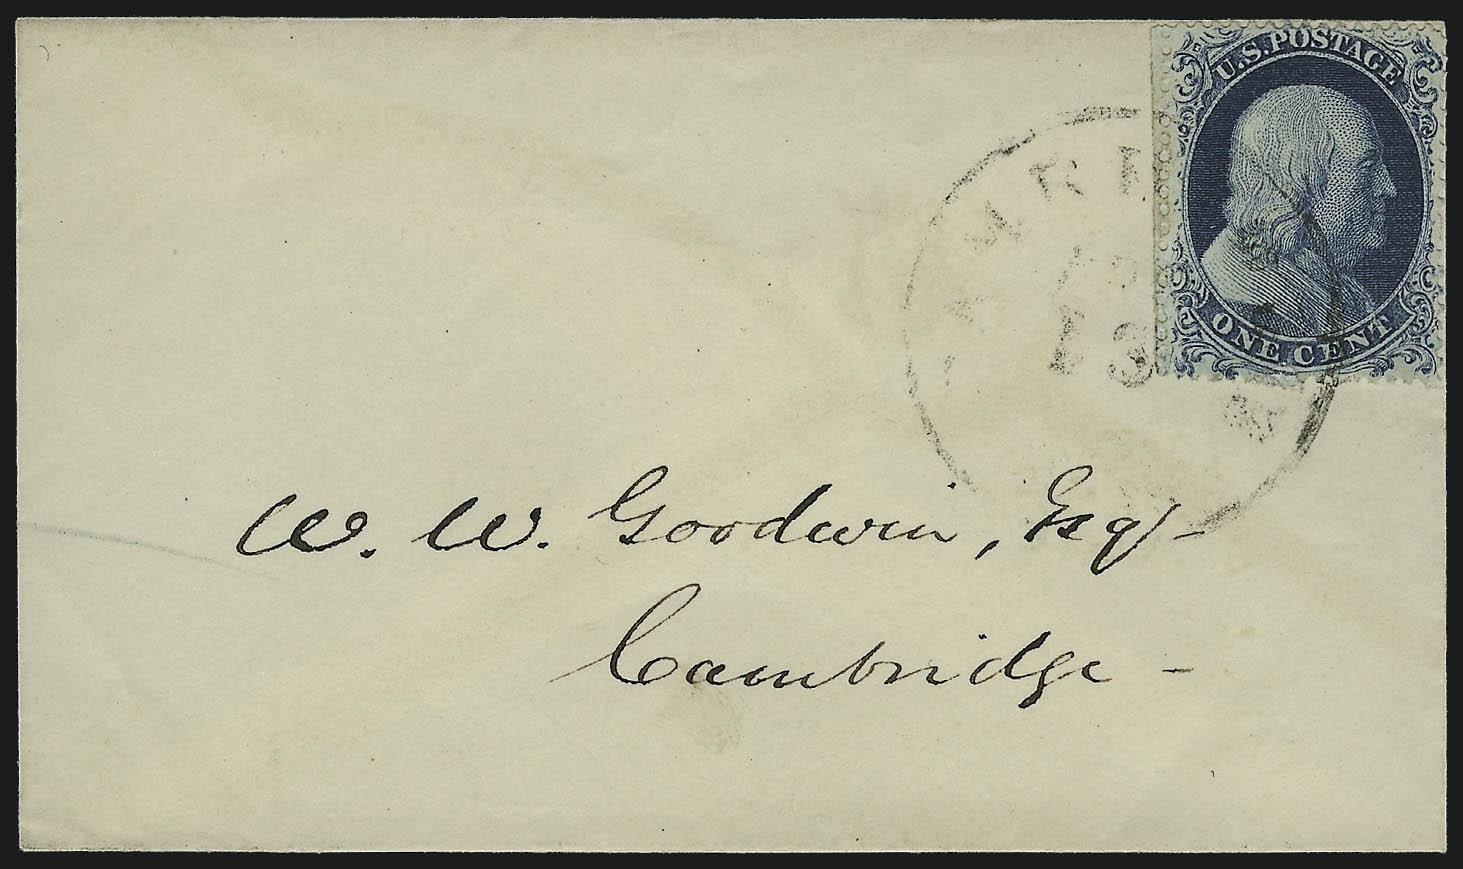 U.S. POSTAGE
ONE CENT
13
W. W. Goodwin, Esq -
Cambridge -